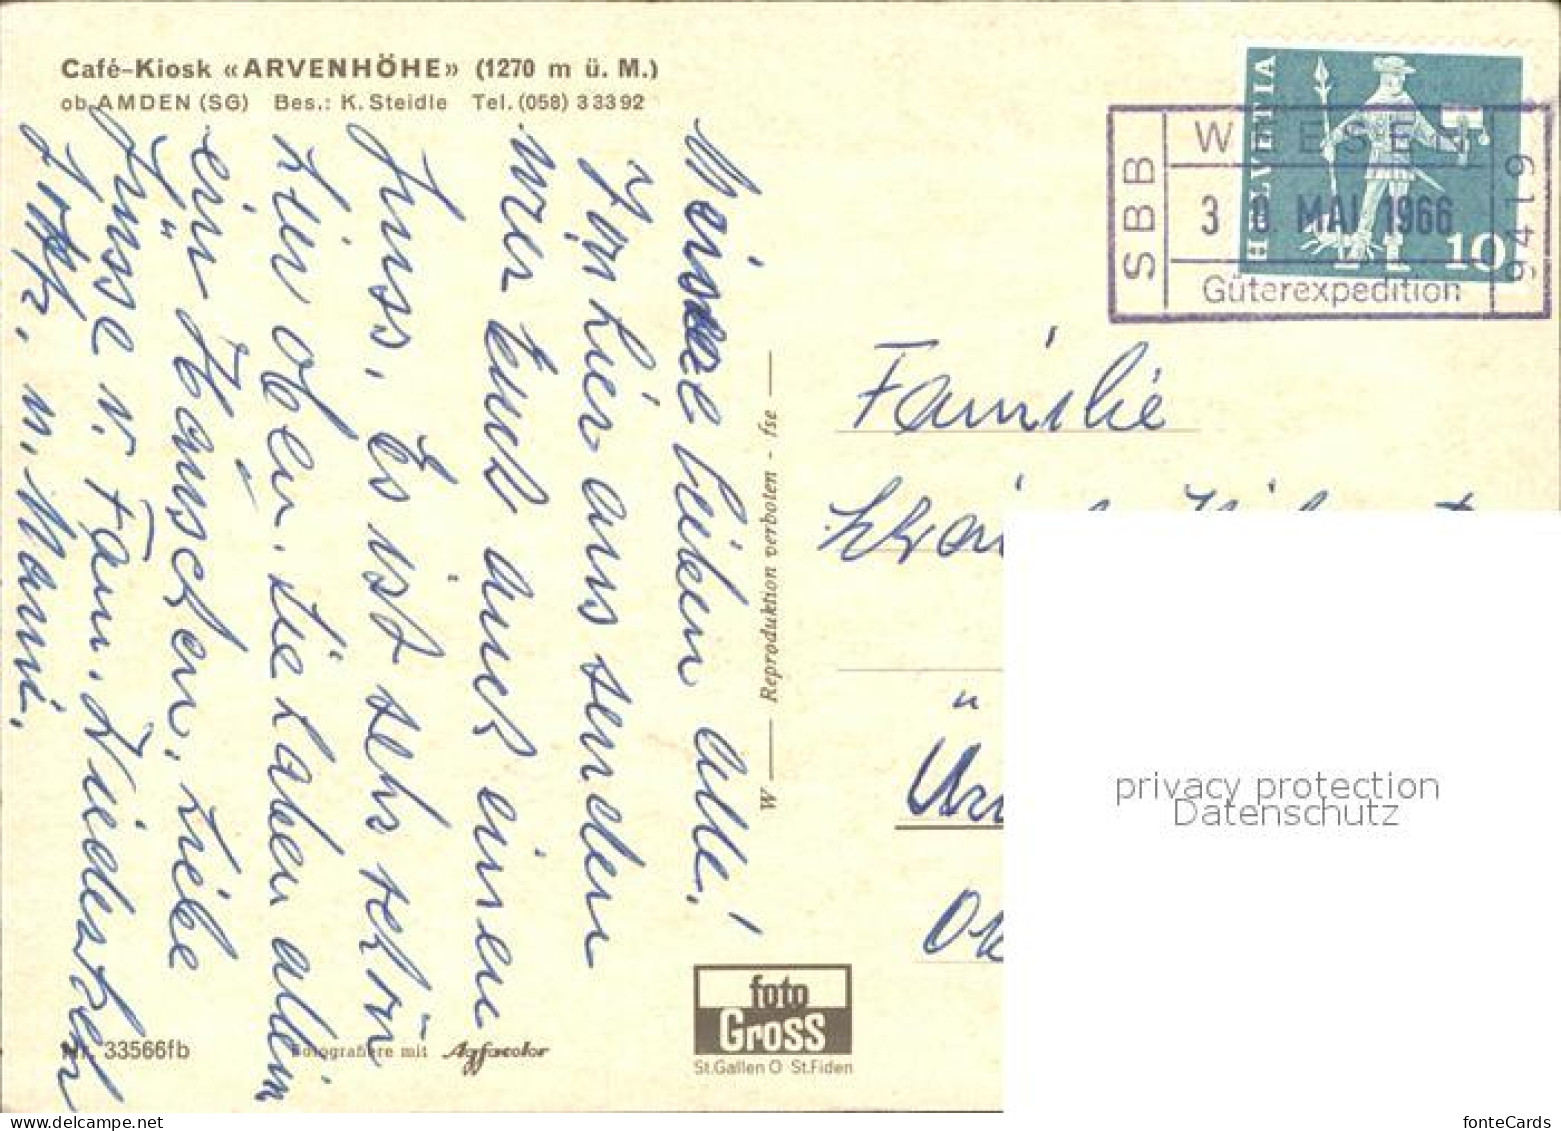 Café-Kiosk «ARVENHÖHE» (1270 m ü. M.)
ob AMDEN (SG) Bes.: K. Steidle Tel. (058) 3 33 92
HELVETIA
10
SBB
WEESEN
30. MAI 1966
Güterexpedition
9419
Meine lieben alle!
Von hier aus senden
wir euch auch einen
Gruss. Es ist sehr schön
hier oben. Sie haben allein
ein Häuschen. Liebe
Grüsse v. Fam.
u. Mami.
W — Reproduktion verboten - fse —
Familie
privacy protection
Datenschutz
foto
Gross
St.Gallen O St.Fiden
Nr. 33566fb
Fotografiere mit Agfacolor
www.delcampe.net
fonteCards